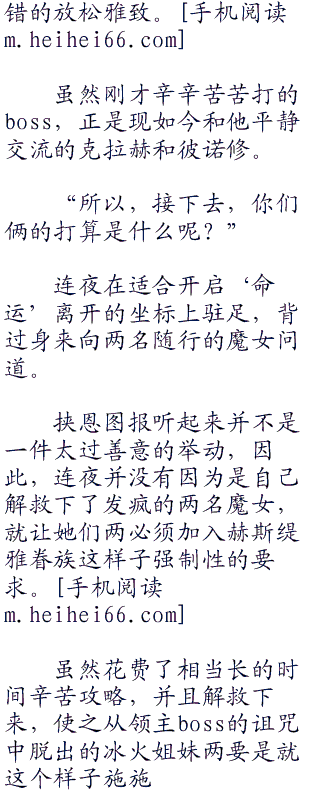 错的放松雅致。[手机阅读
m.heihei66.com]
虽然刚才辛辛苦苦打的
boss，正是现如今和他平静
交流的克拉赫和彼诺修。
“所以，接下去，你们
俩的打算是什么呢？”
连夜在适合开启‘命
运’离开的坐标上驻足，背
过身来向两名随行的魔女问
道。
挟恩图报听起来并不是
一件太过善意的举动，因
此，连夜并没有因为是自己
解救下了发疯的两名魔女，
就让她们两必须加入赫斯缇
雅眷族这样子强制性的要
求。[手机阅读
m.heihei66.com]
虽然花费了相当长的时
间辛苦攻略，并且解救下
来，使之从领主boss的诅咒
中脱出的冰火姐妹两要是就
这个样子施施